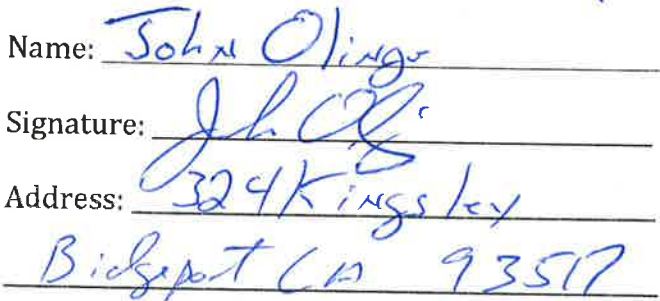 Name: John Olingo
Signature:
Address: 324 Kingsley
Bidgeport CA 93517